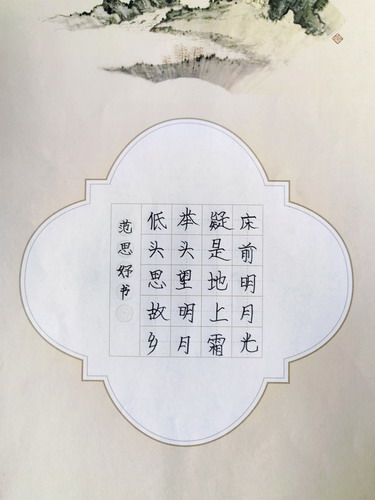 床前明月光
疑是地上霜
举头望明月
低头思故乡
范思妤书